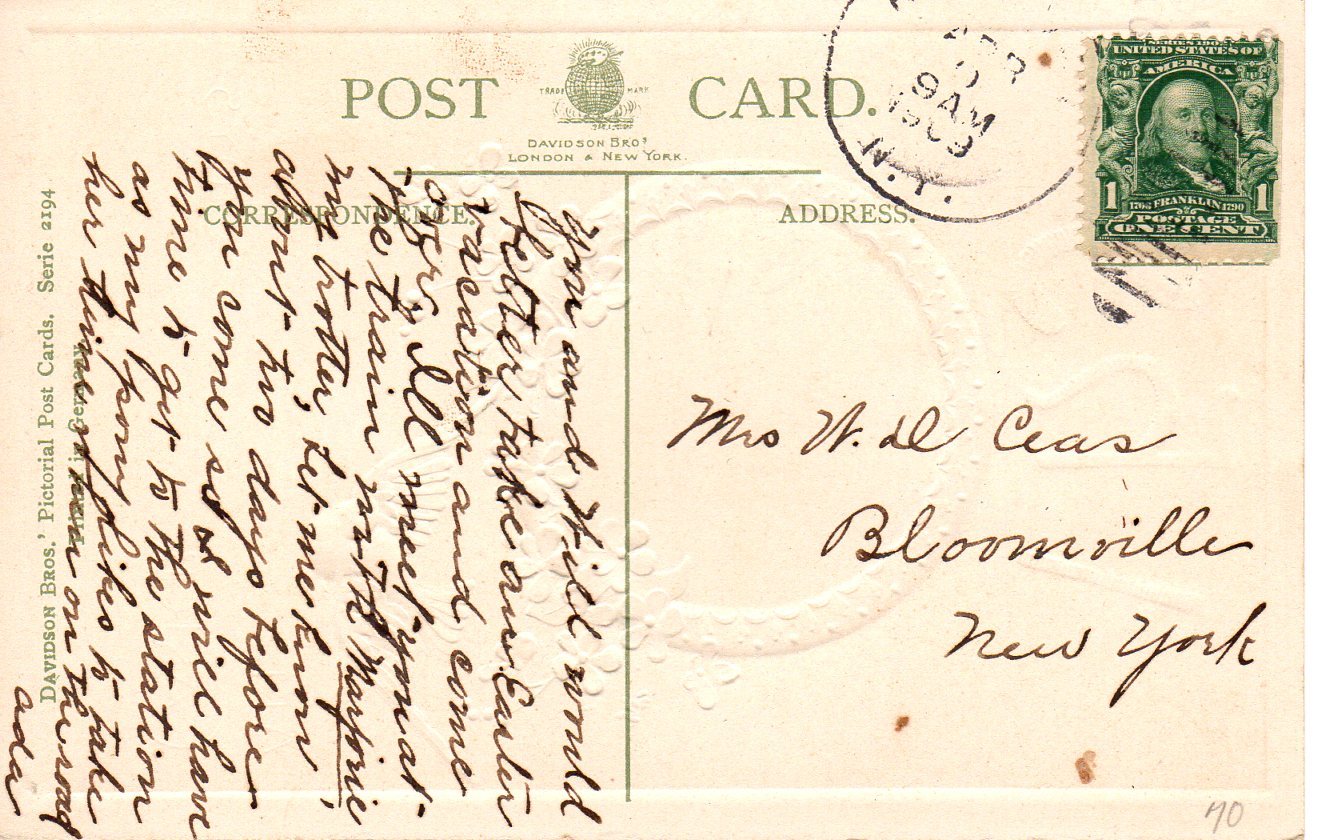 POST CARD.
TRADE MARK
DAVIDSON BROS
LONDON & NEW YORK.
CORRESPONDENCE.
ADDRESS.
APR
9 AM
1909
N.Y.
SERIES 1902
UNITED STATES OF
AMERICA
1 1
1706 FRANKLIN 1790
POSTAGE
ONE CENT
You and Will would
better take an Easter
vacation and come
over. I'll meet you at
the train with Marjorie
my trotter, let me know
about two days before
you come so I will have
time to get to the station
as my pony likes to take
her time when on the road
Ada
Mrs W. D Ceas
Bloomville
New York
DAVIDSON BROS.' Pictorial Post Cards. Serie 2194
Printed in Germany
70